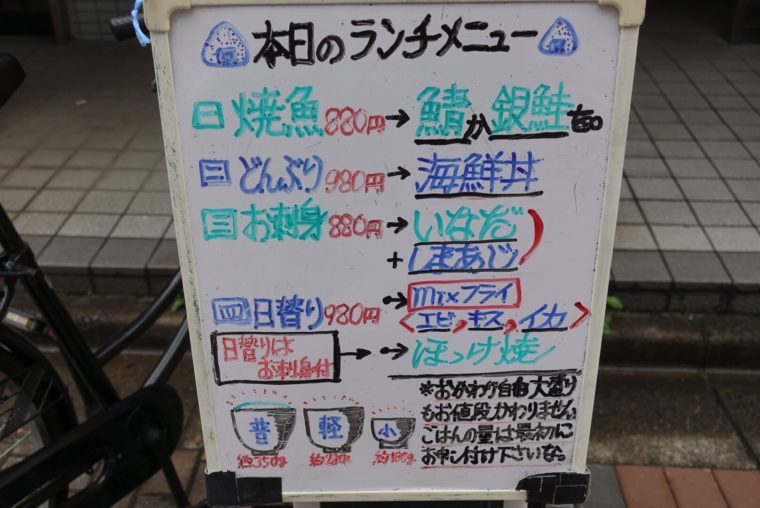 本日のランチメニュー
一 焼魚 880円 → 鯖か銀鮭
二 どんぶり 980円 → 海鮮丼
三 お刺身 880円 → いなだ
+ しまあじ
四 日替り 980円 → mixフライ
<エビ,キス,イカ>
日替りはお刺身付 → → ほっけ焼
*おかわり自由大盛り
もお値段かわりません。
ごはんの量は最初に
お申し付け下さいませ。
普 軽 小
約350g 約230g 約180g